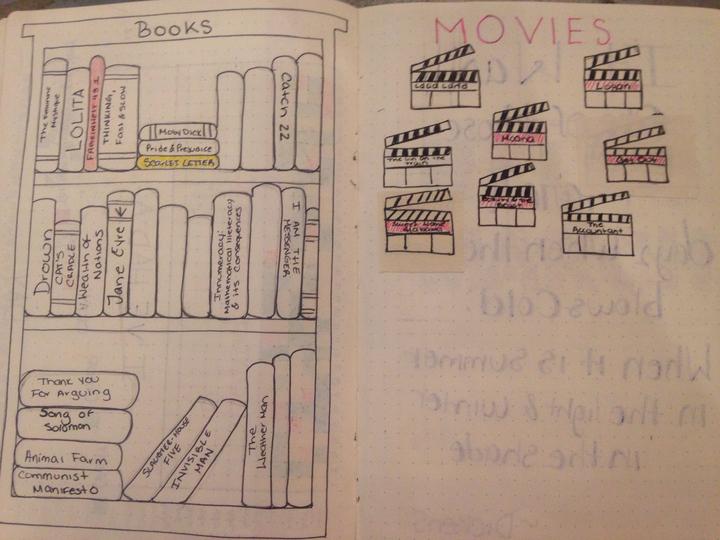 BOOKS
The Feminine
Mystique
LOLITA
FAHRENHEIT 451
THINKING,
Fast & SLOW
Moby Dick
Pride & Prejudice
SCARLET LETTER
Catch 22
Drown
CAT'S
CRADLE
Wealth of
Nations
Jane Eyre
Innumeracy:
Mathematical Illiteracy
& its Consequences
I AM THE
MESSENGER
Thank you
For Arguing
Song of
Solomon
Animal Farm
Communist
Manifesto
SLAUGHTER-HOUSE
FIVE
INVISIBLE
MAN
The
Weather Man
MOVIES
Logan
Moana
Get Out
Sweet Home
Alabama
The
Accountant
days when the
blows cold
When it is Summer
in the light & winter
in the shade
Dickens